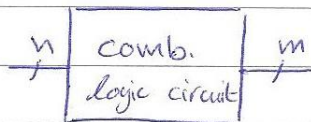 n comb. m
logic circuit